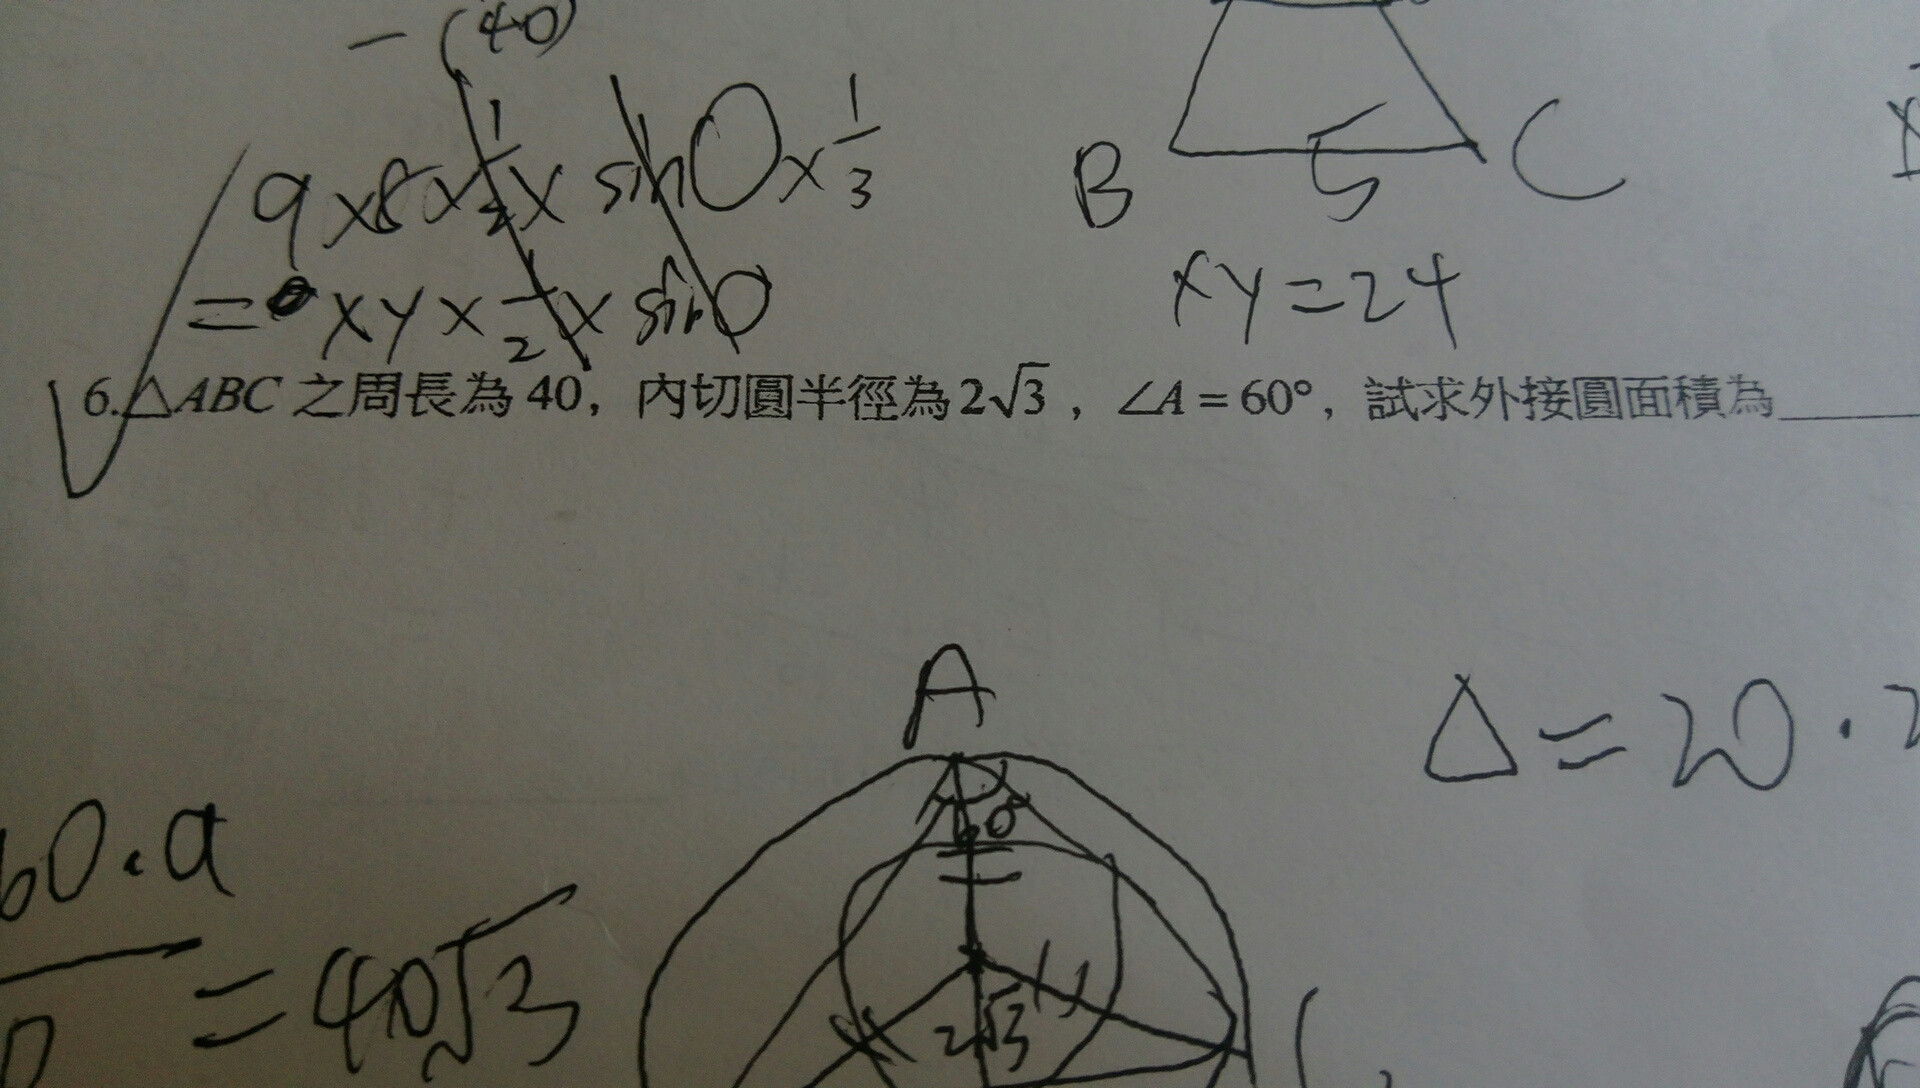 - (40)
9 x 8 x 1/2 x sinθ x 1/3
= xy x 1/2 x sinθ
B 5 C
xy = 24
6. △ABC 之周長為 40，內切圓半徑為 2√3，∠A = 60°，試求外接圓面積為______
A
△ = 20 · 2
60°
60 · a
= 40√3
2√3